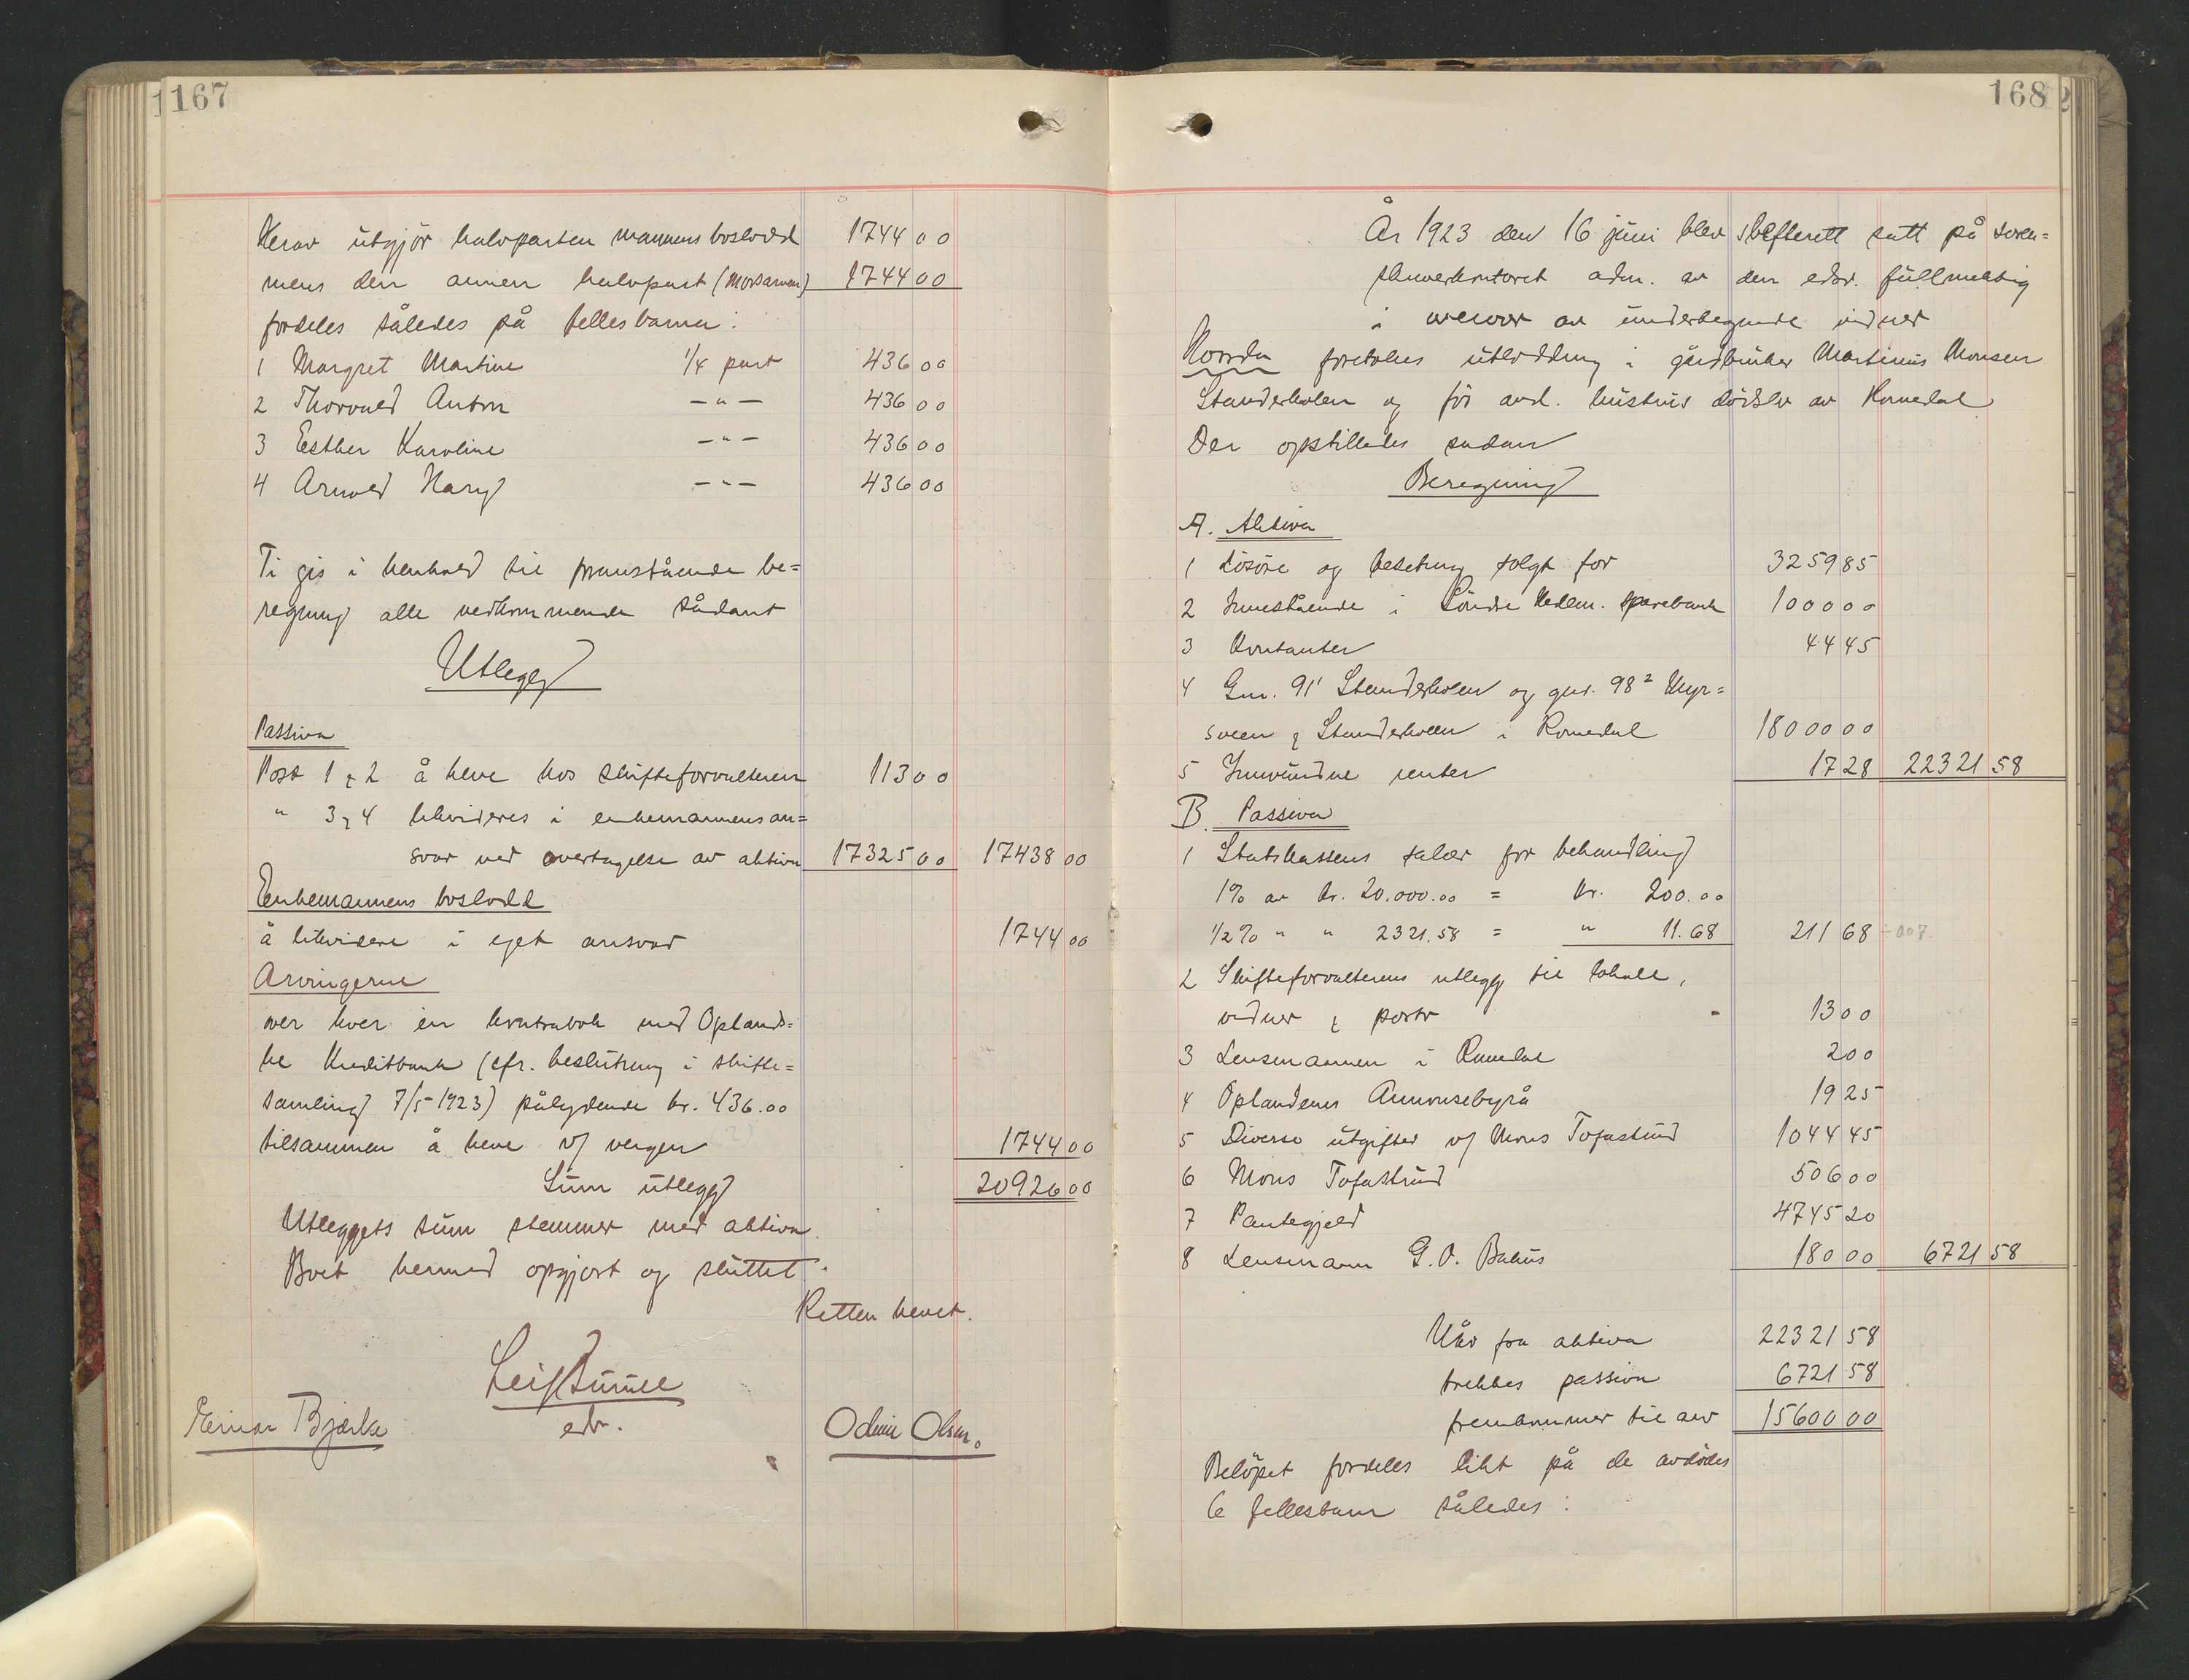 167
Herav utgjör halvparten mannens boslodd 1744 00
mens den annen halvpart (Morsarven) 1744 00
fordeles således på fellesbarna:
1 Margret Martine 1/4 part 436 00
2 Thorvald Anton —"— 436 00
3 Esther Karoline —"— 436 00
4 Arnold Harry —"— 436 00
Ti gis i henhold til franstående be=
regning alle vedkommende sådant
Utlegg
Passiva
Post 1 & 2 å heve hos skifteforvalteren 113 00
" 3 & 4 likvideres i enkemannens an=
svar ved overtagelse av aktiva 17325 00 17438 00
Enkemannens boslodd
å likvidere i eget ansvar 1744 00
Arvingerne
över hver en kontrabok med Oplands=
ke Kreditbank (cfr. beslutning i skifte=
samling 7/5-1923) pålydende kr. 436.00
tilsammen å heve v/ vergen 1744 00
Sum utlegg 20926 00
Utleggets sum stemmer med aktiva.
Boet hermed opgjort og sluttet.
Retten hevet.
Leif
edr.
Einar Bjærke Odin Olsen.
168
År 1923 den 16 juni blev skifterett satt på soren=
skriverkontoret adm. av den edsv. fullmektig
i nærvær av undertegnede vidner
Hvorda foretokes utlodding i gårdbruker Martinus Monsen
Standerholen og för avd. hustrus dödsbo av Romedal
Der opstilledes sådan
Beregning
A. Aktiva
1 Lösöre og besetning solgt for 3259 85
2 Innestående i Söndre Hedem. sparebank 1000 00
3 Kontanter 44 45
4 Gnr. 91¹ Standerholen og gnr. 98² Myr=
sveen & Standerholen i Romedal 18000 00
5 Innvundne renter 17 28 22321 58
B. Passiva
1 Statskassens salær for behandling
1% av kr. 20.000.00 = kr. 200.00
1/2% " " 2321.58 = " 11.68 211 68
2 Skifteforvalterens utlegg til lokale,
vidner & porto 13 00
3 Lensmannen i Romedal 2 00
4 Oplandenes Annonsebyrå 19 25
5 Diverse utgifter v/ Mons Tofastrud 1044 45
6 Mons Tofastrud 506 00
7 Pantegjeld 4745 20
8 Lensmann G. O. Bakus 180 00 6721 58
Når fra aktiva 22321 58
trekkes passiva 6721 58
fremkommer til arv 15600 00
Belöpet fordeles likt på de avdödes
6 fellesbarn således: